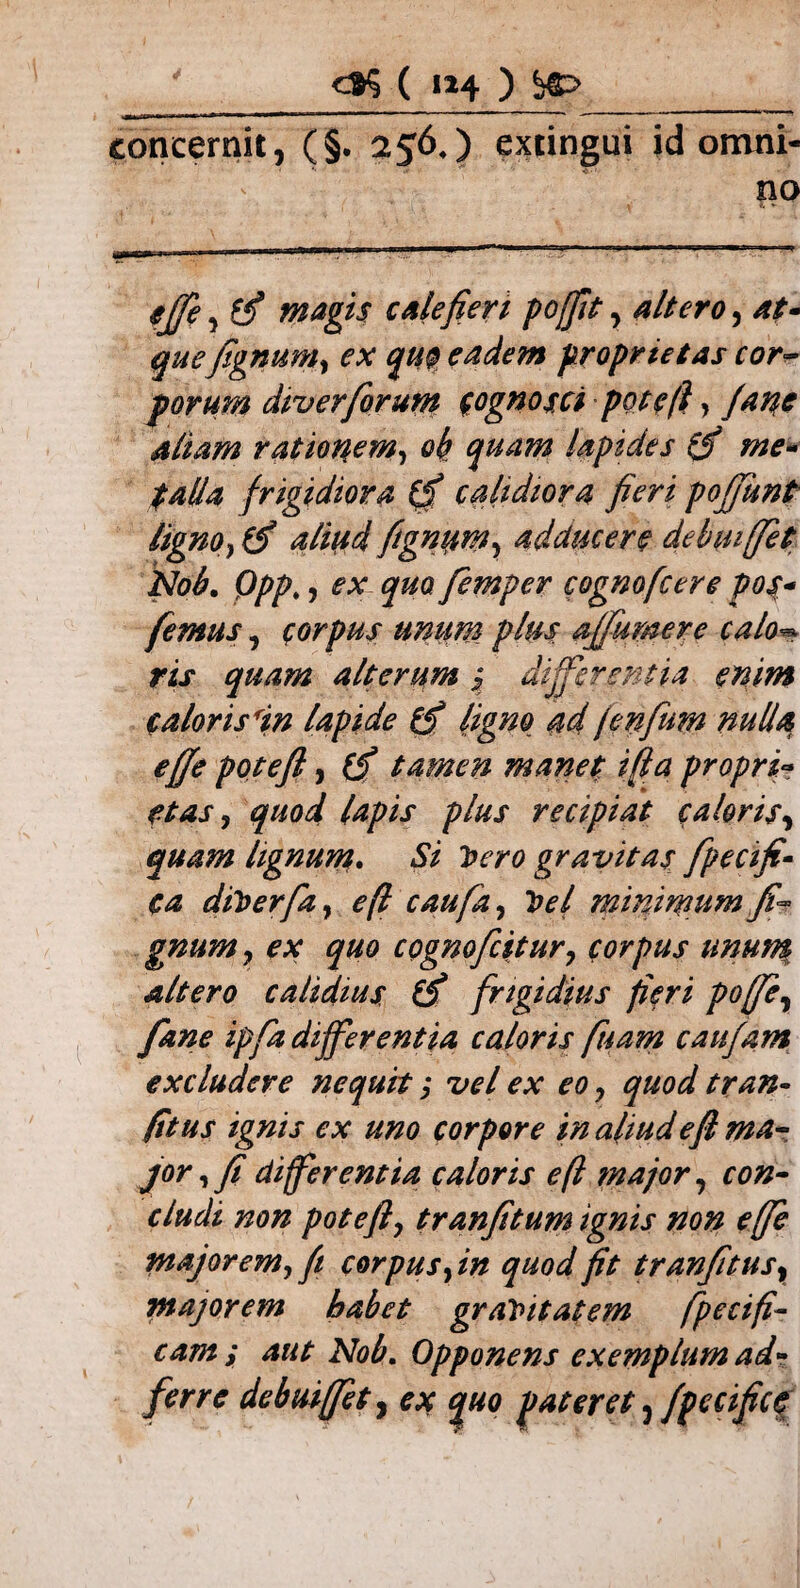 ( 124 )
concernit, (§. 256.) extingui id omni-
no
eſſe, & magis calefieri poſſit, altero, at-
que ſignum, ex quo eadem proprietas cor-
porum diverſorum cognosci poteſt, ſane
aliam rationem, ob quam lapides & me-
talla frigidiora & calidiora fieri poſſunt
ligno, & aliud ſignum, adducere debuiſſet
Nob. Opp., ex quo ſemper cognoſcere poſ-
ſemus, corpus unum plus aſſumere calo-
ris quam alterum; differentia enim
caloris in lapide & ligno ad ſenſum nulla
eſſe poteſt, & tamen manet iſta propri-
etas, quod lapis plus recipiat caloris,
quam lignum. Si vero gravitas ſpecifi-
ca diverſa, eſt cauſa, vel minimum ſi-
gnum, ex quo cognoſcitur, corpus unum
altero calidius & frigidius fieri poſſe,
ſane ipſa differentia caloris ſuam cauſam
excludere nequit; vel ex eo, quod tran-
ſitus ignis ex uno corpore in aliud eſt ma-
jor, ſi differentia caloris eſt major, con-
cludi non poteſt, tranſitum ignis non eſſe
majorem, ſi corpus, in quod fit tranſitus,
majorem habet gravitatem ſpecifi-
cam; aut Nob. Opponens exemplum ad-
ferre debuiſſet, ex quo pateret, ſpecifice